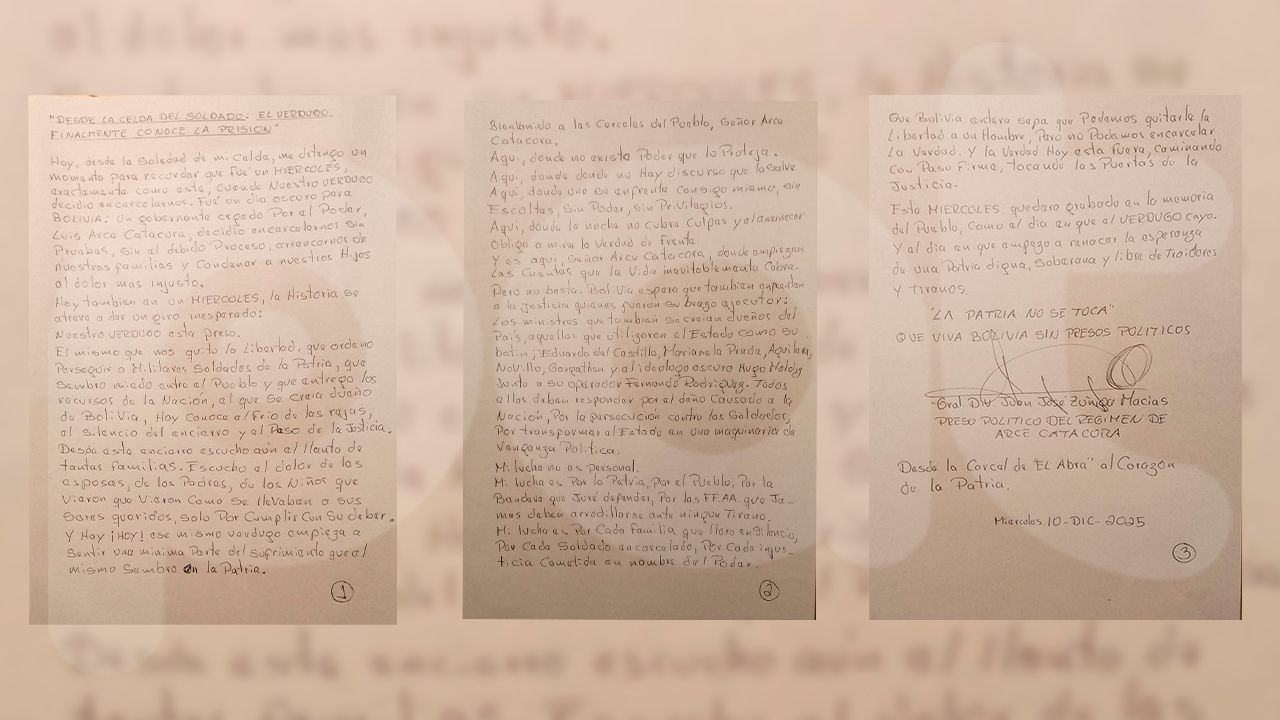 "DESDE LA CELDA DEL SOLDADO: EL VERDUGO,
FINALMENTE CONOCE LA PRISION"
Hoy, desde la Soledad de mi Celda, me detengo un
momento para recordar que fué un MIERCOLES,
exactamente como este, Cuando Nuestro VERDUGO
decidio encarcelarnos. Fué un dia oscuro para
BOLIVIA: Un gobernante cegado Por el Poder,
Luis Arce Catacora, decidio encarcelarnos Sin
Pruebas, Sin el debido Proceso, arrancarnos de
nuestras familias y Condenar a nuestros Hijos
al dolor mas injusto.
Hoy tambien en un MIERCOLES, la Historia se
atreve a dar un giro inesperado:
Nuestro VERDUGO esta preso.
El mismo que nos quito la Libertad, que ordeno
Perseguir a Militares Soldados de la Patria, que
Sembro miedo entre el Pueblo y que entrego los
recursos de la Nación, el que se creia dueño
de Bolivia, Hoy Conoce el Frio de las rejas,
el Silencio del encierro y el Peso de la Justicia.
Desde este encierro escucho aún el llanto de
tantas familias. Escucho el dolor de las
esposas, de los Padres, de los Niños que
Vieron que Vieron Como Se llevaban a sus
Seres queridos, Solo Por Cumplir Con Su deber.
Y Hoy ¡HOY! ese mismo verdugo empieza a
Sentir una minima Parte del sufrimiento que el
mismo Sembro en la Patria.
1
Bienbenido a las Carceles del Pueblo, Señor Arce
Catacora.
Aqui, donde no existe Poder que lo Proteja.
Aqui, donde donde no Hay discurso que lo Salve
Aqui, donde uno se enfrenta Consigo mismo, Sin
Escoltas, Sin Poder, Sin Privilegios.
Aqui, donde la noche no Cubre Culpas y el amanecer
Obliga a mirar la Verdad de Frente.
Y es aqui, Señor Arce Catacora, donde empiezan
Las Cuentas que la Vida inevitablemente Cobra.
Pero no basta. Bolivia espera que tambien enfrenten
a la Justicia quienes fueron su brazo ejecutor:
Los ministros que tambien se creian dueños del
Pais, aquellos que utilizaron el Estado como su
botin, Eduardo del Castillo, Marianela Prada, Aguilera,
Novillo, Gongathan y el ideologo oscuro Hugo Moldiz
Junto a su operador Fernando Rodriguez. Todos
ellos deben responder por el daño Causado a la
Nación, Por la persecución contra los Soldados,
Por transformar el Estado en una maquinaria de
Venganza Politica.
Mi lucha no es personal.
Mi lucha es Por la Patria, Por el Pueblo, Por la
Bandera que Juré defender, Por las FF.AA. que Ja-
mas deben arrodillarse ante ningun Tirano.
Mi lucha es Por Cada Familia que llora en Silencio,
Por Cada Soldado encarcelado, Por Cada injus-
ticia Cometida en nombre del Poder.
2
Que Bolivia entera sapa que Podemos quitarle la
Libertad a un Hombre, Pero no Podemos encarcelar
La Verdad. Y la Verdad Hoy esta fuera, Caminando
Con Paso Firme, tocando las Puertas de la
Justicia.
Este MIERCOLES quedara grabado en la memoria
del Pueblo, Como el dia en que el VERDUGO cayo.
Y el dia en que empezo a renacer la esperanza
de una Patria digna, Soberana y libre de Traidores
y Tiranos.
"LA PATRIA NO SE TOCA"
QUE VIVA BOLIVIA SIN PRESOS POLITICOS
Gral Div. Juan José Zuñiga Macias
PRESO POLITICO DEL REGIMEN DE
ARCE CATACORA
Desde la Carcel de "El Abra" al Corazon
de la Patria.
Miercoles 10-DIC-2025
3